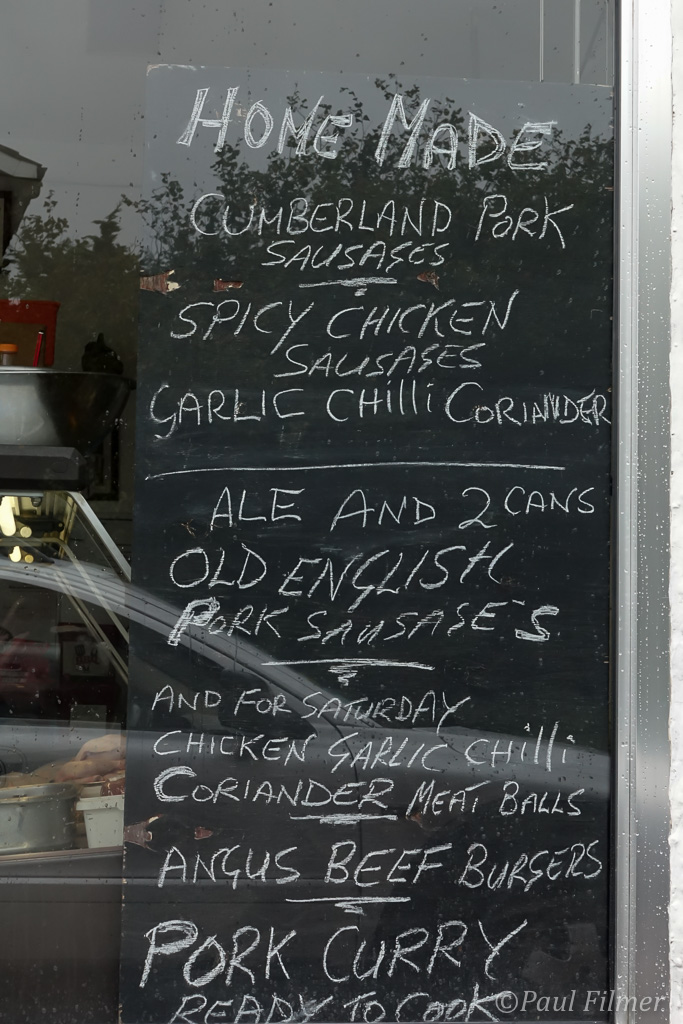 HOME MADE
CUMBERLAND PORK
SAUSAGES
SPICY CHICKEN
SAUSAGES
GARLIC CHilli CORIANDER
ALE AND 2 CANS
OLD ENGLISH
PORK SAUSAGE'S
AND FOR SATURDAY
CHICKEN GARLIC CHilli
CORIANDER MEAT BALLS
ANGUS BEEF BURGERS
PORK CURRY
READY TO COOK
©Paul Filmer